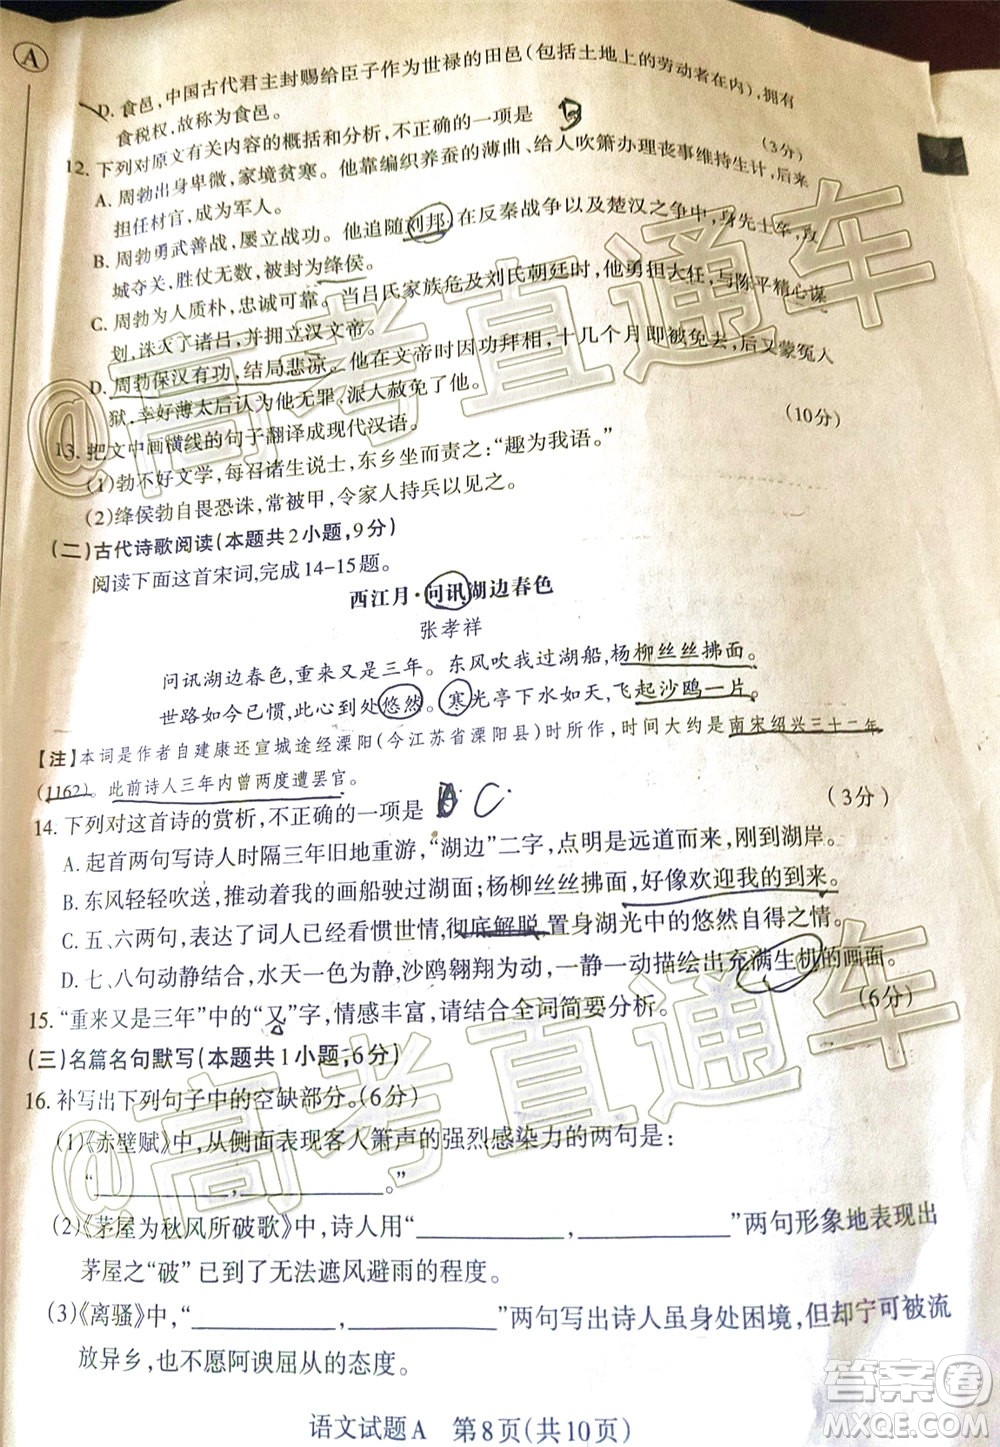 A
D. 食邑,中国古代君主封赐给臣子作为世禄的田邑(包括土地上的劳动者在内),拥有
食税权,故称为食邑。
12. 下列对原文有关内容的概括和分析,不正确的一项是 (3分)
A. 周勃出身卑微,家境贫寒。他靠编织养蚕的薄曲、给人吹箫办理丧事维持生计,后来
担任材官,成为军人。
B. 周勃勇武善战,屡立战功。他追随刘邦,在反秦战争以及楚汉之争中,身先士卒,攻
城夺关,胜仗无数,被封为绛侯。
C. 周勃为人质朴,忠诚可靠。当吕氏家族危及刘氏朝廷时,他勇担大任,与陈平精心谋
划,诛灭了诸吕,并拥立汉文帝。
D. 周勃保汉有功,结局悲凉。他在文帝时因功拜相,十几个月即被免去,后又蒙冤入
狱,幸好薄太后认为他无罪,派人赦免了他。
13. 把文中画横线的句子翻译成现代汉语。 (10分)
(1)勃不好文学,每召诸生说士,东乡坐而责之:“趣为我语。”
(2)绛侯勃自畏恐诛,常被甲,令家人持兵以见之。
(二)古代诗歌阅读(本题共2小题,9分)
阅读下面这首宋词,完成14-15题。
西江月·问讯湖边春色
张孝祥
问讯湖边春色,重来又是三年。东风吹我过湖船,杨柳丝丝拂面。
世路如今已惯,此心到处悠然。寒光亭下水如天,飞起沙鸥一片。
【注】本词是作者自建康还宣城途经溧阳(今江苏省溧阳县)时所作,时间大约是南宋绍兴三十二年
(1162)。此前诗人三年内曾两度遭罢官。
14. 下列对这首诗的赏析,不正确的一项是 C (3分)
A. 起首两句写诗人时隔三年旧地重游,“湖边”二字,点明是远道而来,刚到湖岸。
B. 东风轻轻吹送,推动着我的画船驶过湖面;杨柳丝丝拂面,好像欢迎我的到来。
C. 五、六两句,表达了词人已经看惯世情,彻底解脱,置身湖光中的悠然自得之情。
D. 七、八句动静结合,水天一色为静,沙鸥翱翔为动,一静一动描绘出充满生机的画面。
15. “重来又是三年”中的“又”字,情感丰富,请结合全词简要分析。 (6分)
(三)名篇名句默写(本题共1小题,6分)
16. 补写出下列句子中的空缺部分。(6分)
(1)《赤壁赋》中,从侧面表现客人箫声的强烈感染力的两句是:
“__________,__________。”
(2)《茅屋为秋风所破歌》中,诗人用“__________,__________”两句形象地表现出
茅屋之“破”已到了无法遮风避雨的程度。
(3)《离骚》中,“__________,__________”两句写出诗人虽身处困境,但却宁可被流
放异乡,也不愿阿谀屈从的态度。
语文试题A 第8页(共10页)
@高考直通车
@高考直通车
答案圈
MXQE.COM